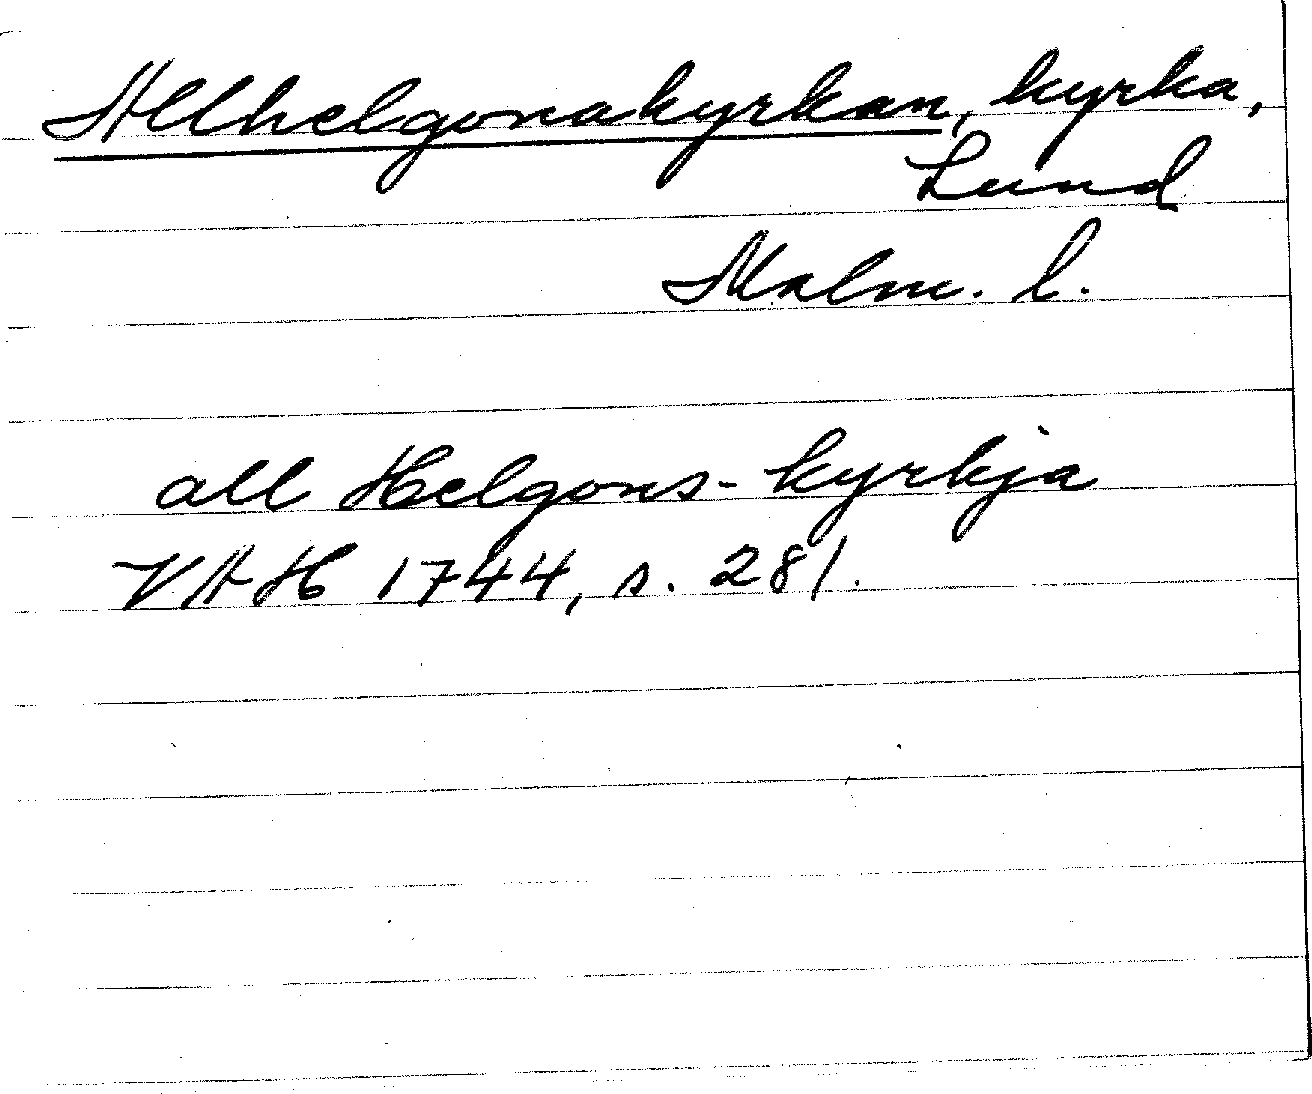 Allhelgonakyrkan, kyrka,
Lund
Malm. l.
all Helgons-kyrkja
VAH 1744, s. 281.